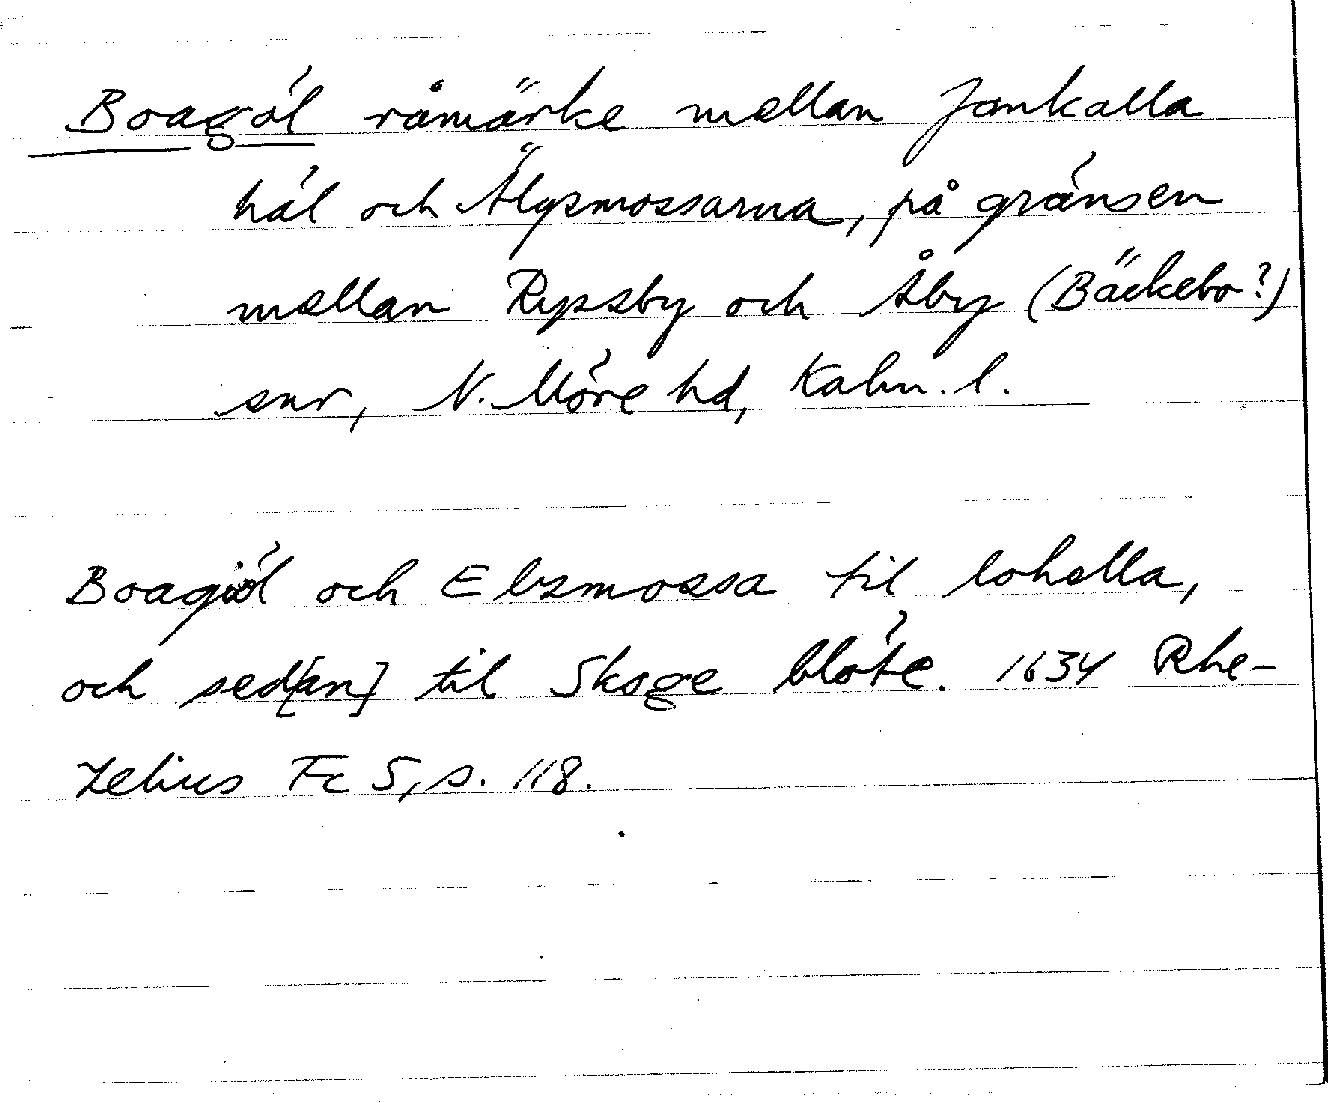 Boagöl råmärke mellan Jankalla
hål och Älgsmossarna, på gränsen
mellan Ryssby och Åby (Bäckebo?)
snr, N. Möre hd, Kalm. l.
Boagiöl och Elszmossa til lohella,
och sed[an] til Skoge blöte. 1634 Rhe-
zelius Fc 5, s. 118.